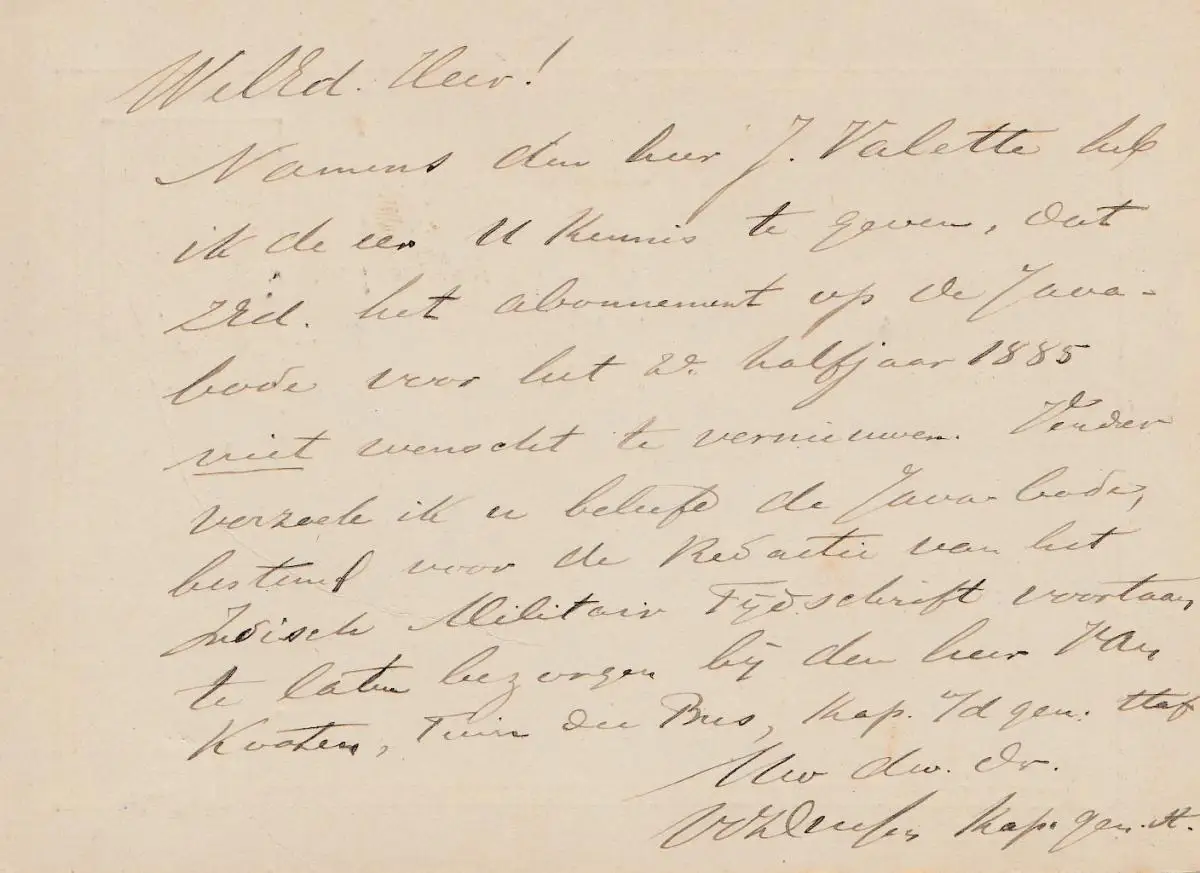 WelEd. Heer!
Namens den heer J. Valette heb
ik de eer U kennis te geven, dat
ZEd. het abonnement op de Java-
bode voor het 2e. halfjaar 1885
niet wenscht te vernieuwen. Verder
verzoek ik u beleefd de Java-bode,
bestemd voor de Redactie van het
Indisch Militair Tijdschrift voortaan
te laten bezorgen bij den heer Van
Kooten, Tuin du Bus, Kap. v/d gen. staf
Uw dw. dr.
Kap. gen. st.